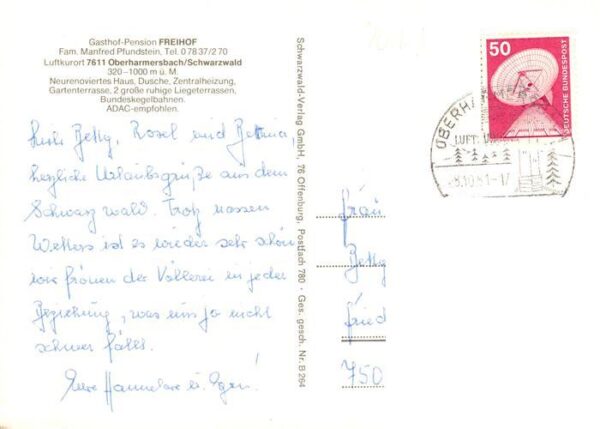 Gasthof-Pension FREIHOF
Fam. Manfred Pfundstein, Tel. 0 78 37/2 70
Luftkurort 7611 Oberharmersbach/Schwarzwald
320–1000 m ü. M.
Neurenoviertes Haus, Dusche, Zentralheizung,
Gartenterrasse, 2 große ruhige Liegeterrassen,
Bundeskegelbahnen.
ADAC-empfohlen.
Betty, Rosel und Bettina,
herzliche Urlaubsgrüße aus dem
Schwarzwald. Trotz nassen
Wetters ist es wieder sehr schön
wir frönen der Völlerei in jeder
Beziehung, was uns ja nicht
schwer fällt.
Eure Hannelore u.
Schwarzwald-Verlag GmbH, 76 Offenburg, Postfach 780 · Ges. gesch. Nr. B 264
50
DEUTSCHE BUNDESPOST
OBERHARMERS
LUFT
8.10.81-17
Frau
Betty
Fried
750